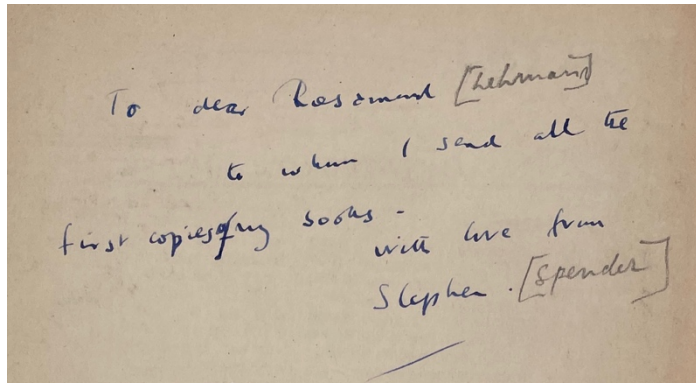 To dear Rosamund [Lehmann]
to whom I send all the
first copies of my books -
with love from
Stephen. [Spender]